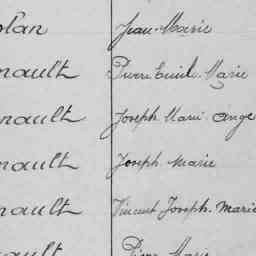 olan Jean-Marie
nault Pierre Emile Marie
nault Joseph Marie Ange
nault Joseph Marie
nault Vincent Joseph. Marie
nault Pierre Marie